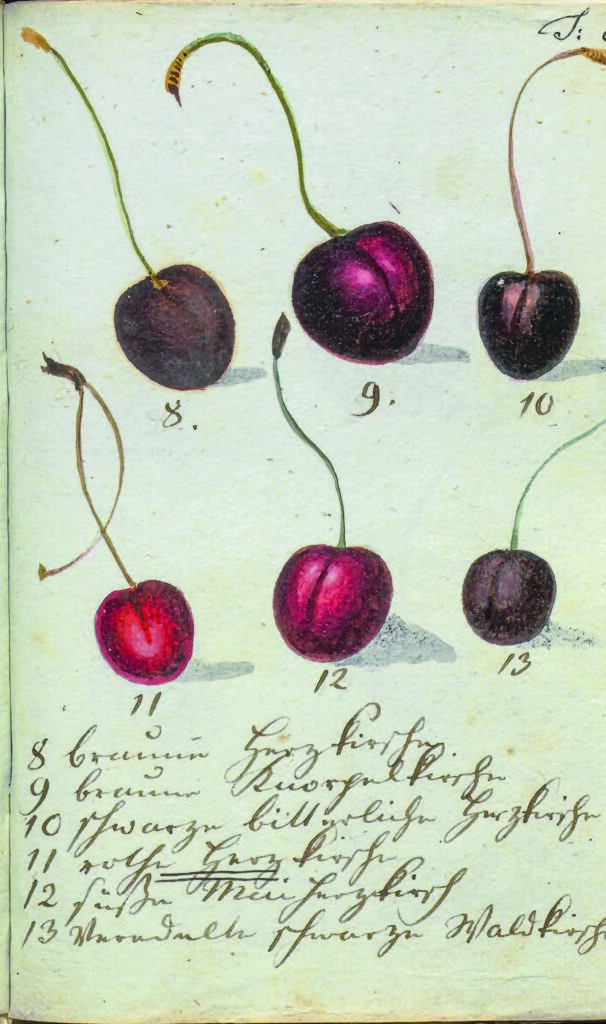 T:
8.
9.
10
11
12
13
8 braune Herzkirsche
9 braune Knorpelkirsche
10 schwarze bitterliche Herzkirsche
11 rothe Herzkirsche
12 süße Maiherzkirsch
13 Veredelte schwarze Waldkirsche